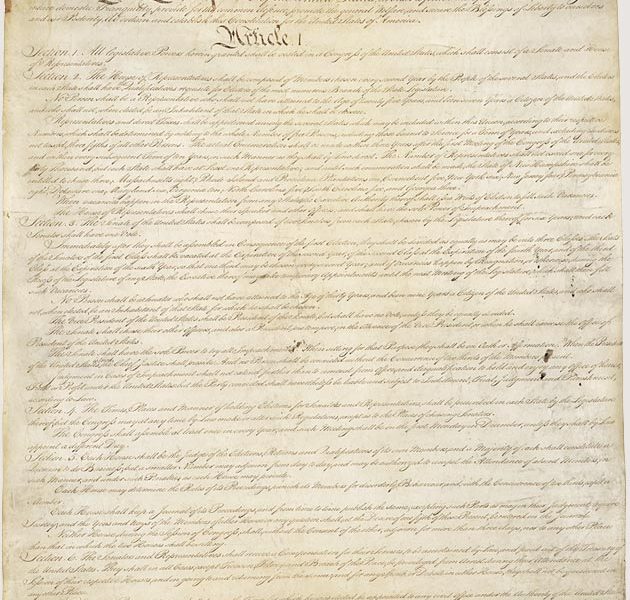 insure domestic Tranquility, provide for the common defence, promote the general Welfare, and secure the Blessings of Liberty to ourselves
and our Posterity, do ordain and establish this Constitution for the United States of America.
Article. I.
Section. 1. All legislative Powers herein granted shall be vested in a Congress of the United States, which shall consist of a Senate and House
of Representatives.
Section. 2. The House of Representatives shall be composed of Members chosen every second Year by the People of the several States, and the Electors
in each State shall have Qualifications requisite for Electors of the most numerous Branch of the State Legislature.
No Person shall be a Representative who shall not have attained to the Age of twenty five Years, and been seven Years a Citizen of the United States,
and who shall not, when elected, be an Inhabitant of that State in which he shall be chosen.
Representatives and direct Taxes shall be apportioned among the several States which may be included within this Union, according to their respective
Numbers, which shall be determined by adding to the whole Number of free Persons, including those bound to Service for a Term of Years, and excluding Indians
not taxed, three fifths of all other Persons. The actual Enumeration shall be made within three Years after the first Meeting of the Congress of the United States,
and within every subsequent Term of ten Years, in such Manner as they shall by Law direct. The Number of Representatives shall not exceed one for every
thirty Thousand, but each State shall have at Least one Representative; and until such enumeration shall be made, the State of New Hampshire shall be
entitled to chuse three, Massachusetts eight, Rhode-Island and Providence Plantations one, Connecticut five, New-York six, New Jersey four, Pennsylvania
eight, Delaware one, Maryland six, Virginia ten, North Carolina five, South Carolina five, and Georgia three.
When vacancies happen in the Representation from any State, the Executive Authority thereof shall issue Writs of Election to fill such Vacancies.
The House of Representatives shall chuse their Speaker and other Officers; and shall have the sole Power of Impeachment.
Section. 3. The Senate of the United States shall be composed of two Senators from each State, chosen by the Legislature thereof, for six Years; and each
Senator shall have one Vote.
Immediately after they shall be assembled in Consequence of the first Election, they shall be divided as equally as may be into three Classes. The Seats
of the Senators of the first Class shall be vacated at the Expiration of the second Year, of the second Class at the Expiration of the fourth Year, and of the third
Class at the Expiration of the sixth Year, so that one third may be chosen every second Year; and if Vacancies happen by Resignation, or otherwise, during the
Recess of the Legislature of any State, the Executive thereof may make temporary Appointments until the next Meeting of the Legislature, which shall then fill
such Vacancies.
No Person shall be a Senator who shall not have attained to the Age of thirty Years, and been nine Years a Citizen of the United States, and who shall
not, when elected, be an Inhabitant of that State for which he shall be chosen.
The Vice President of the United States shall be President of the Senate, but shall have no Vote, unless they be equally divided.
The Senate shall chuse their other Officers, and also a President pro tempore, in the Absence of the Vice President, or when he shall exercise the Office of
President of the United States.
The Senate shall have the sole Power to try all Impeachments. When sitting for that Purpose, they shall be on Oath or Affirmation. When the President
of the United States is tried, the Chief Justice shall preside: And no Person shall be convicted without the Concurrence of two thirds of the Members present.
Judgment in Cases of Impeachment shall not extend further than to removal from Office, and disqualification to hold and enjoy any Office of honor,
Trust or Profit under the United States: but the Party convicted shall nevertheless be liable and subject to Indictment, Trial, Judgment and Punishment,
according to Law.
Section. 4. The Times, Places and Manner of holding Elections for Senators and Representatives, shall be prescribed in each State by the Legislature
thereof; but the Congress may at any time by Law make or alter such Regulations, except as to the Places of chusing Senators.
The Congress shall assemble at least once in every Year, and such Meeting shall be on the first Monday in December, unless they shall by Law
appoint a different Day.
Section. 5. Each House shall be the Judge of the Elections, Returns and Qualifications of its own Members, and a Majority of each shall constitute a
Quorum to do Business; but a smaller Number may adjourn from day to day, and may be authorized to compel the Attendance of absent Members, in
such Manner, and under such Penalties as each House may provide.
Each House may determine the Rules of its Proceedings, punish its Members for disorderly Behaviour, and, with the Concurrence of two thirds, expel a
Member.
Each House shall keep a Journal of its Proceedings, and from time to time publish the same, excepting such Parts as may in their Judgment require
Secrecy; and the Yeas and Nays of the Members of either House on any question shall, at the Desire of one fifth of those Present, be entered on the Journal.
Neither House, during the Session of Congress, shall, without the Consent of the other, adjourn for more than three days, nor to any other Place
than that in which the two Houses shall be sitting.
Section. 6. The Senators and Representatives shall receive a Compensation for their Services, to be ascertained by Law, and paid out of the Treasury of
the United States. They shall in all Cases, except Treason, Felony and Breach of the Peace, be privileged from Arrest during their Attendance at the
Session of their respective Houses, and in going to and returning from the same; and for any Speech or Debate in either House, they shall not be questioned in
any other Place.